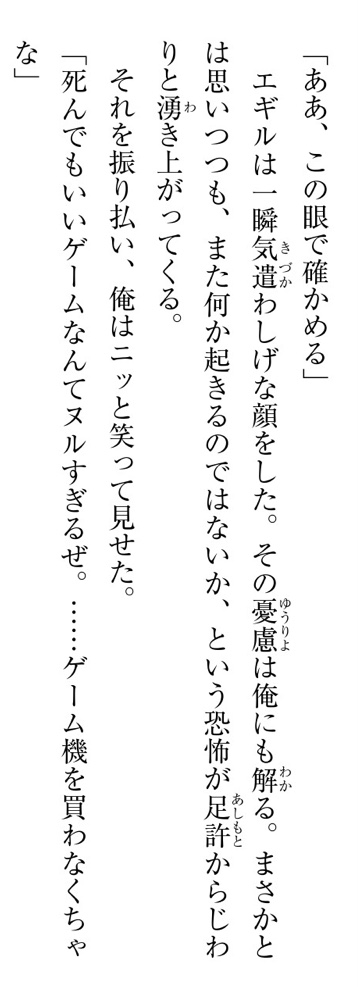 「ああ、この眼で確かめる」
　エギルは一瞬気遣わしげな顔をした。その憂慮は俺にも解る。まさかと
は思いつつも、また何か起きるのではないか、という恐怖が足許からじわ
りと湧き上がってくる。
　それを振り払い、俺はニッと笑って見せた。
「死んでもいいゲームなんてヌルすぎるぜ。……ゲーム機を買わなくちゃ
な」